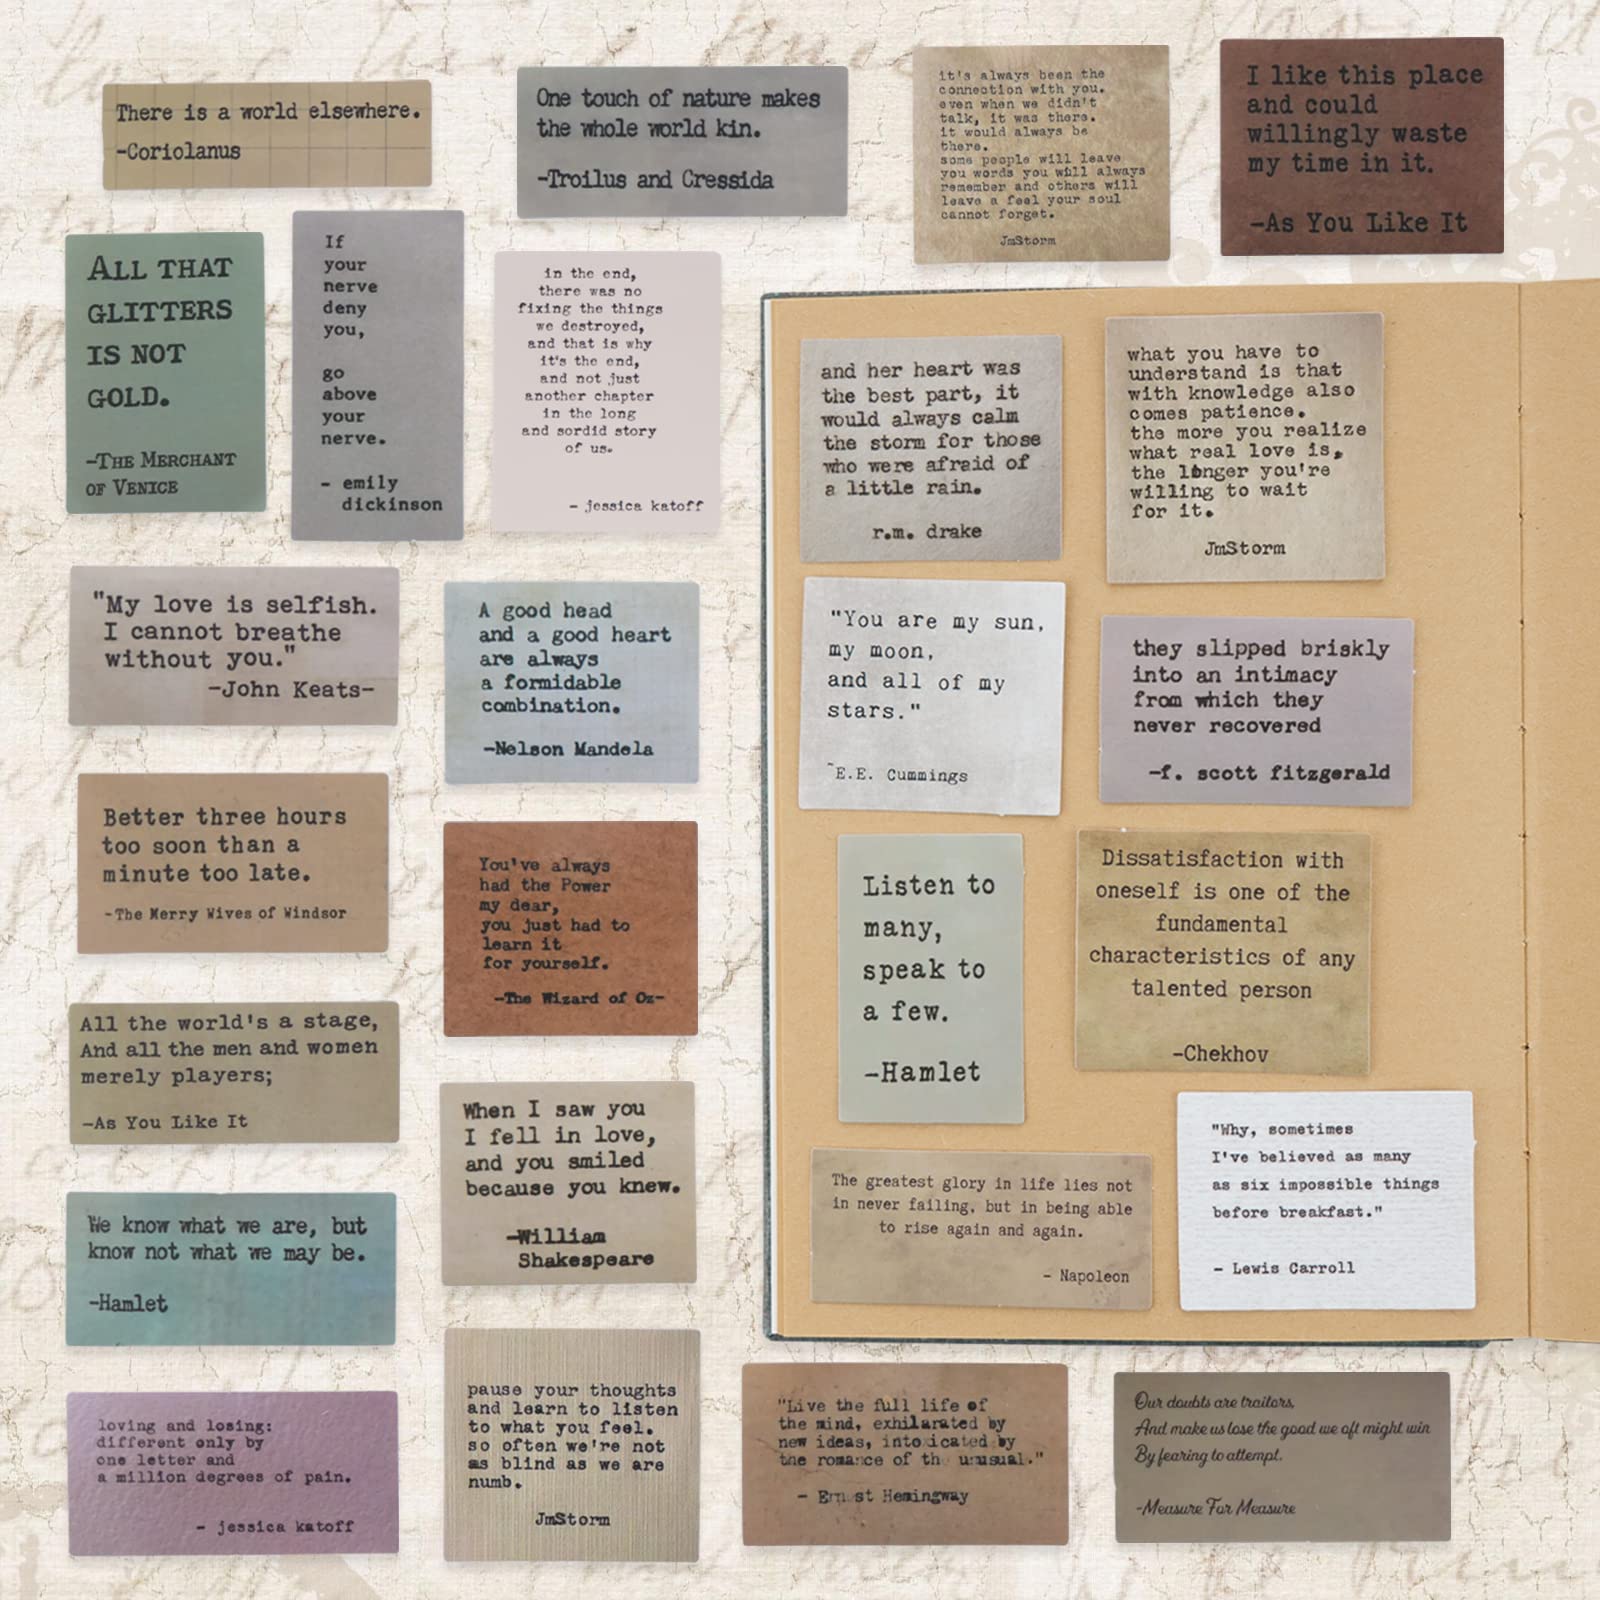 There is a world elsewhere.
-Coriolanus
One touch of nature makes
the whole world kin.
-Troilus and Cressida
it's always been the
connection with you.
even when we didn't
talk, it was there.
it would always be
there.
some people will leave
you words you will always
remember and others will
leave a feel your soul
cannot forget.
JmStorm
I like this place
and could
willingly waste
my time in it.
-As You Like It
ALL THAT
GLITTERS
IS NOT
GOLD.
-THE MERCHANT
OF VENICE
If
your
nerve
deny
you,
go
above
your
nerve.
- emily
dickinson
in the end,
there was no
fixing the things
we destroyed,
and that is why
it's the end,
and not just
another chapter
in the long
and sordid story
of us.
- jessica katoff
and her heart was
the best part, it
would always calm
the storm for those
who were afraid of
a little rain.
r.m. drake
what you have to
understand is that
with knowledge also
comes patience.
the more you realize
what real love is,
the longer you're
willing to wait
for it.
JmStorm
"My love is selfish.
I cannot breathe
without you."
-John Keats-
A good head
and a good heart
are always
a formidable
combination.
-Nelson Mandela
"You are my sun,
my moon,
and all of my
stars."
~E.E. Cummings
they slipped briskly
into an intimacy
from which they
never recovered
-f. scott fitzgerald
Better three hours
too soon than a
minute too late.
-The Merry Wives of Windsor
You've always
had the Power
my dear,
you just had to
learn it
for yourself.
-The Wizard of Oz-
Listen to
many,
speak to
a few.
-Hamlet
Dissatisfaction with
oneself is one of the
fundamental
characteristics of any
talented person
-Chekhov
All the world's a stage,
And all the men and women
merely players;
-As You Like It
When I saw you
I fell in love,
and you smiled
because you knew.
-William
Shakespeare
The greatest glory in life lies not
in never failing, but in being able
to rise again and again.
- Napoleon
"Why, sometimes
I've believed as many
as six impossible things
before breakfast."
- Lewis Carroll
We know what we are, but
know not what we may be.
-Hamlet
loving and losing:
different only by
one letter and
a million degrees of pain.
- jessica katoff
pause your thoughts
and learn to listen
to what you feel.
so often we're not
as blind as we are
numb.
JmStorm
"Live the full life of
the mind, exhilarated by
new ideas, intoxicated by
the romance of the unusual."
- Ernest Hemingway
Our doubts are traitors,
And make us lose the good we oft might win
By fearing to attempt.
-Measure For Measure